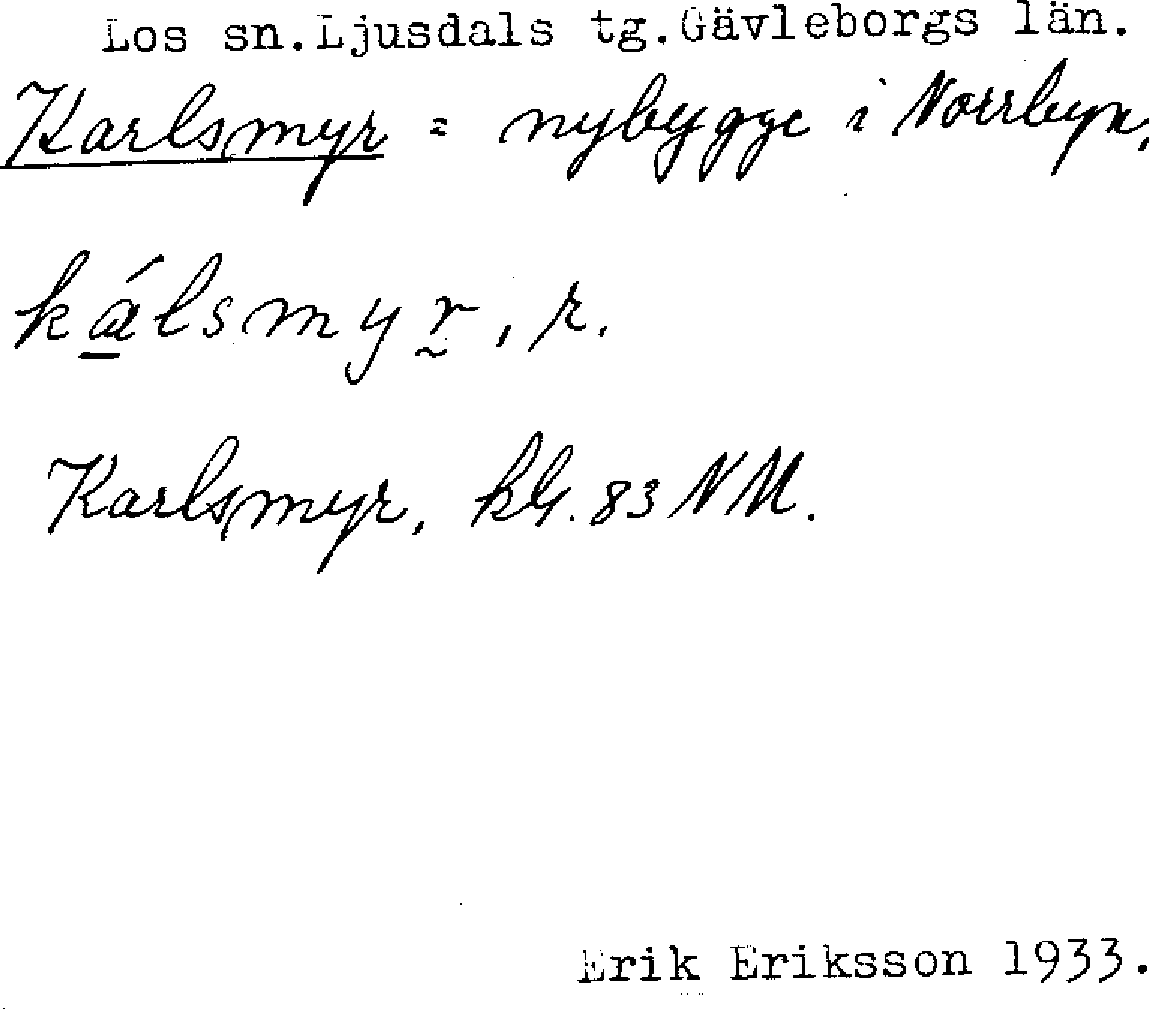 Los sn.Ljusdals tg.Gävleborgs län.
Karlsmyr = nybygge i Norrbyn,
kálsmyr, r.
Karlsmyr, kbl. 83 NM.
Erik Eriksson 1933.